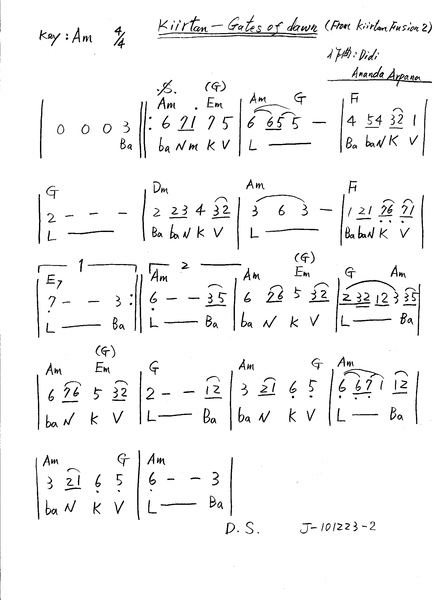 Key: Am 4/4 Kiirtan – Gates of dawn (From Kiirtan Fusion 2)
作曲: Didi
Ananda Arpana
(G)
Am Em Am G F
0 0 0 3 6 71 7 5 6 65 5 – 4 54 32 1
Ba ba N m K V L —— Ba ba N K V
G Dm Am F
2 – – – 2 23 4 32 3 6 3 – 1 21 76 71
L —— Ba ba N K V L —— Ba ba N K V
1 2 (G)
E7 Am Am Em G Am
7 – – 3 6 – – 35 6 76 5 32 2 32 12 3 35
L —— Ba L —— Ba ba N K V L —— Ba
(G)
Am Em G Am G Am
6 76 5 32 2 – – 12 3 21 6 5 6 67 1 12
ba N K V L —— Ba ba N K V L —— Ba
Am G Am
3 21 6 5 6 – – 3
ba N K V L —— Ba
D.S. J-101223-2